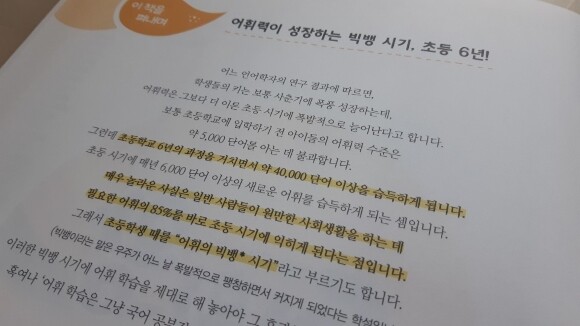 이 책을
펴내며
어휘력이 성장하는 빅뱅 시기, 초등 6년!
어느 언어학자의 연구 결과에 따르면,
학생들의 키는 보통 사춘기에 폭풍 성장하는데,
어휘력은 그보다 더 이른 초등 시기에 폭발적으로 늘어난다고 합니다.
보통 초등학교에 입학하기 전 아이들의 어휘력 수준은
약 5,000 단어를 아는 데 불과합니다.
그런데 초등학교 6년의 과정을 거치면서 약 40,000 단어 이상을 습득하게 됩니다.
초등 시기에 매년 6,000 단어 이상의 새로운 어휘를 습득하게 되는 셈입니다.
매우 놀라운 사실은 일반 사람들이 원만한 사회생활을 하는 데
필요한 어휘의 85%를 바로 초등 시기에 익히게 된다는 점입니다.
그래서 초등학생 때를 "어휘의 빅뱅* 시기"라고 부르기도 합니다.
(빅뱅이라는 말은 우주가 어느 날 폭발적으로 팽창하면서 커지게 되었다는 학설
이러한 빅뱅 시기에 어휘 학습을 제대로 해 놓아야 그
혹여나 '어휘 학습은 그냥 국어